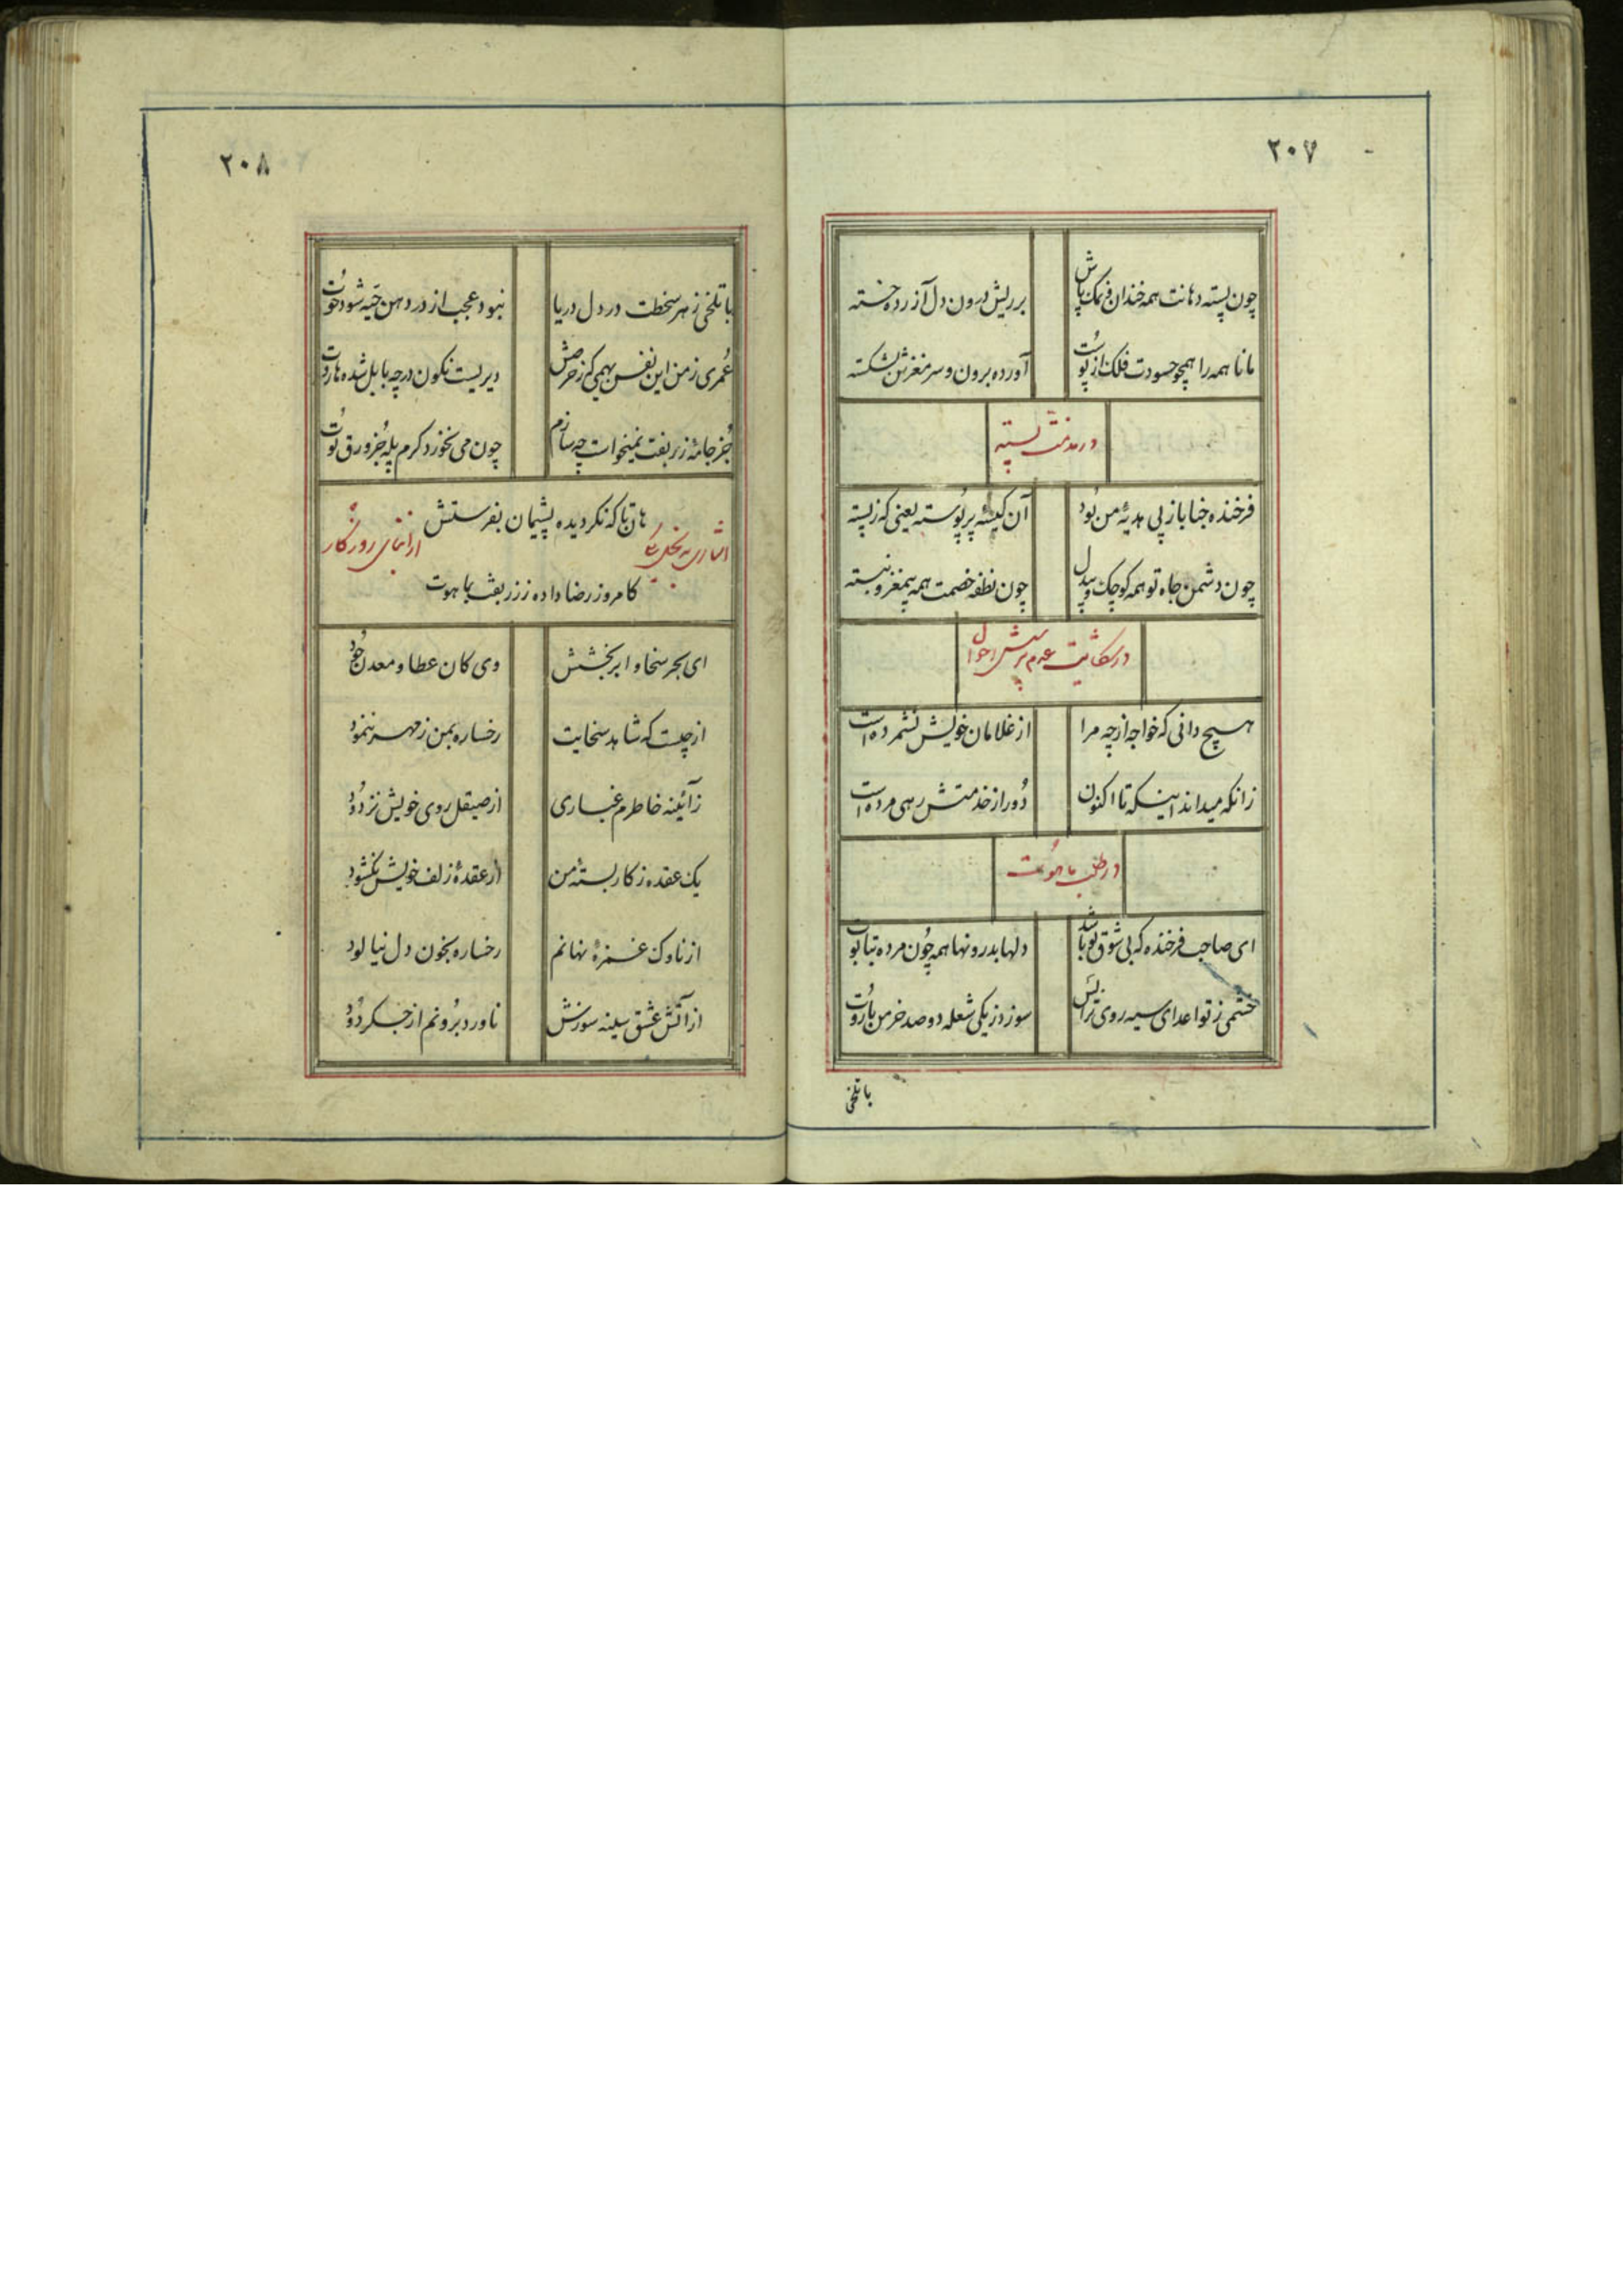 ۲۰۷
چون پسته دهانت همه خندان و نمک پاش
بر ریش درون دل آزرده خسته
مانا همه را همچو حسودت فلک از پوست
آورده برون و سر مغزش بشکسته
در مذمت پسته
فرخنده جنابا ز پی هدیهٔ من بود
آن کیسهٔ پر پوسته یعنی که ز پسته
چون دشمن جاه تو همه کوچک و بیدل
چون نطفه خصمت همه بیمغز و نبسته
در شکایت عدم پرسش احوال
هیچ دانی که خواجه از چه مرا
از غلامان خویش نشمرده است
زانکه میداند اینکه تا اکنون
دور از خدمتش رهی مرده است
در طلب ماهوت
ای صاحب فرخنده که بی شوق تو باشد
دلها بدرونها همه چون مرده بتابوت
خشمی ز تو اعدای سیه روی ترا بس
سوزد ز یکی شعله دو صد خرمن باروت
با تلخی
۲۰۸
با تلخی زهر سخطت در دل دریا
نبود عجب از در دهن حیه شود حوت
عمری ز من این نفس بهیمی که ز حرصش
دیریست نگون در چه بابل شده هاروت
جز جامهٔ زربفت نمیخواست چه سازم
چون می نخورد کرم پله جز ورق توت
هان تا که نگردیده پشیمان بفرستش
ابنای روزگار
کامروز رضا داده ز زربفت بماهوت
ای بحر سخا و ابر بخشش
وی کان عطا و معدن جود
از چیست که شاهد سخایت
رخساره بمن ز مهر ننمود
زآئینه خاطرم غباری
از صیقل روی خویش نزدود
یک عقده ز کار بستهٔ من
از عقدهٔ زلف خویش نگشود
از ناوک غمزهٔ نهانم
رخساره بخون دل نیالود
از آتش عشق سینه سوزش
ناورد برونم از جگر دود